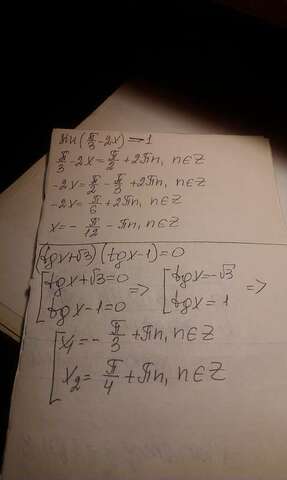 sin(π/3-2x)=1
π/3-2x=π/2+2πn, n∈Z
-2x=π/2-π/3+2πn, n∈Z
-2x=π/6+2πn, n∈Z
x=-π/12-πn, n∈Z
(tgx+√3)(tgx-1)=0
[tgx+√3=0 => [tgx=-√3 =>
tgx-1=0 tgx=1
[x₁=-π/3+πn, n∈Z
x₂=π/4+πn, n∈Z